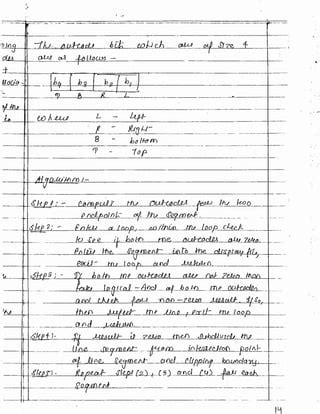 The outcodes bits which are of size 4
are as follows -
b4 b3 b2 b1
T B R L
where L - Left
R - Right
B - bottom
T - Top
Algorithm :-
Step 1: - Compute the outcodes for the two
endpoints of the segment
Step 2: - Enter a loop, within the loop check
to see if both the outcodes are zero.
Enter the segment into the display file,
exit the loop and return.
Step 3: - If both the outcodes are not zero then
take logical - And of both the outcodes
and check for non-zero result. If so,
then reject the line, exit the loop
and return
Step 4: - If result is zero then subdivide the
line segment from intersection point
of line segment and clipping boundary.
Step 5: - Repeat step (2), (3) and (4) for each
segment